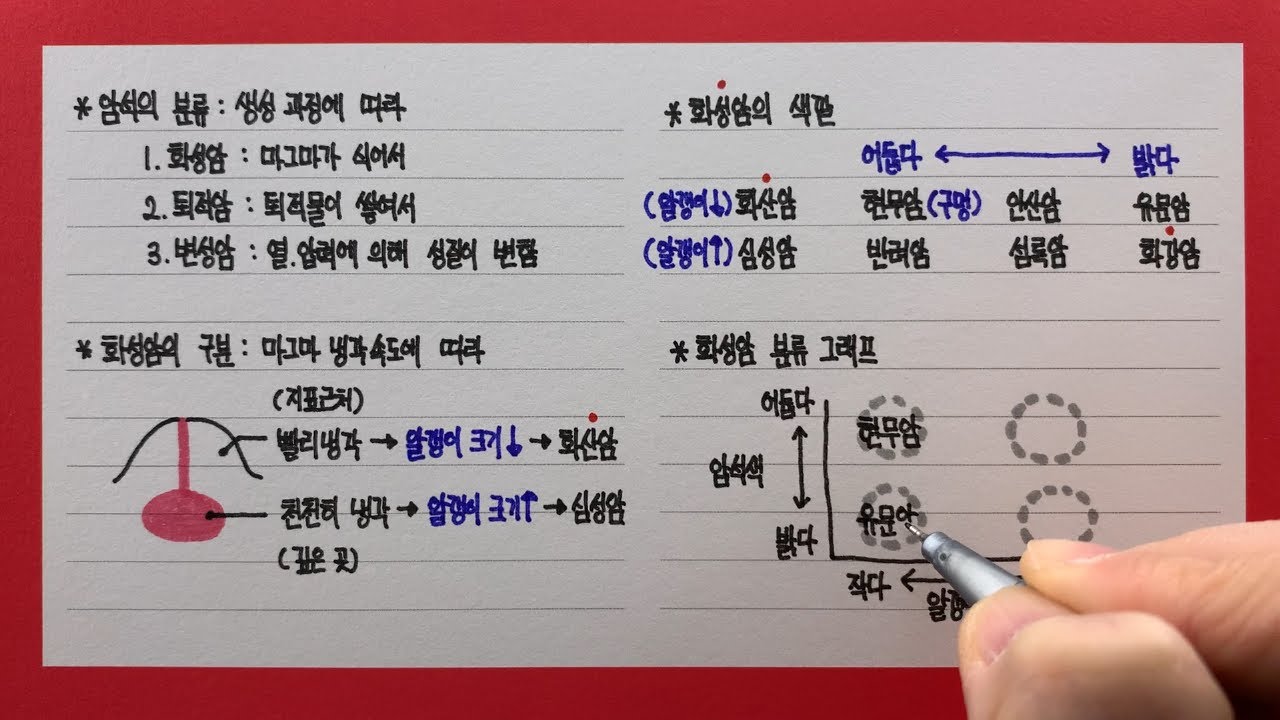 * 암석의 분류 : 생성 과정에 따라
1. 화성암 : 마그마가 식어서
2. 퇴적암 : 퇴적물이 쌓여서
3. 변성암 : 열.압력에 의해 성질이 변함
* 화성암의 구분 : 마그마 냉각속도에 따라
(지표근처)
빨리냉각 → 알갱이 크기↓ → 화산암
천천히 냉각 → 알갱이 크기↑ → 심성암
(깊은 곳)
* 화성암의 색깔
어둡다 ↔ 밝다
(알갱이↓) 화산암 현무암(구멍) 안산암 유문암
(알갱이↑) 심성암 반려암 섬록암 화강암
* 화성암 분류 그래프
어둡다
현무암
암석색
유문암
밝다
작다 ←